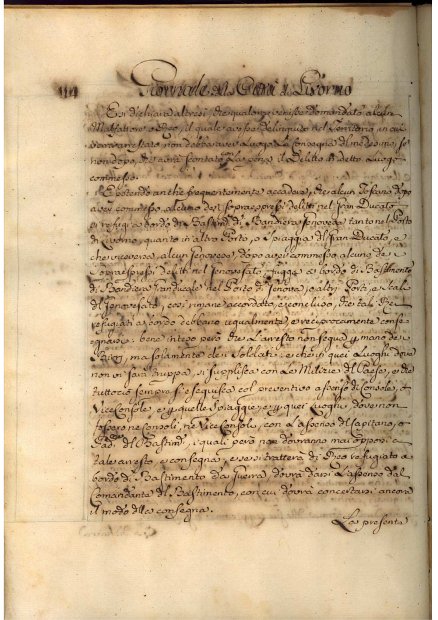 Giornale di Livorno
E si dichiara altresì che qualora venisse domandato alcun
Malfattore o Reo, il quale avesse delinquito nel Territorio in cui
sarà arrestato non debba aver luogo la consegna di medesimo, se
non dopo, che avrà scontata la pena del Delitto in detto Luogo
commesso.
E potendo anche frequentemente accadere, che alcun Toscano dopo
aver commesso alcuno de' sopraespressi delitti nel Gran Ducato
si refugi a bordo di Bastimti di Bandiera Genovese tanto nel Porto
di Livorno, quanto in altro Porto, o Spiaggia del Gran Ducato, e
che viceversa alcun Genovese, dopo aver commesso alcuno de
sopraespressi delitti nel Genovesato, fugga a bordo di Bastimento
di Bandiera Toscana nel Porto di Genova, o altri Porti, e Scali
del Genovesato, così rimane accordato, e concluso, che tali Rei
refugiati a bordo debbano egualmente, e reciprocamente conse
gnarsi: bene inteso però che l'arresto non segua per mano de
Birri, ma solamente de Soldati, e che in quei Luoghi dove
non vi sarà truppa, si supplisca con le Milizie del Paese, e che
tutto ciò sempre si eseguisca col preventivo assenso del Console, o
ViceConsole, e per quelle Spiagge, e per quei Luoghi dove non
fossero ne Consoli, ne ViceConsoli, con l'assenso del Capitano, o
del Bastimto, i quali però non dovranno mai opporsi a
tale arresto, e consegna, e se si tratterà di Reo refugiato a
bordo di Bastimento da Guerra, dovrà darsi l'assenso dal
Comandante del Bastimento, con cui dovrà concertarsi ancora
il modo della consegna.
La presente